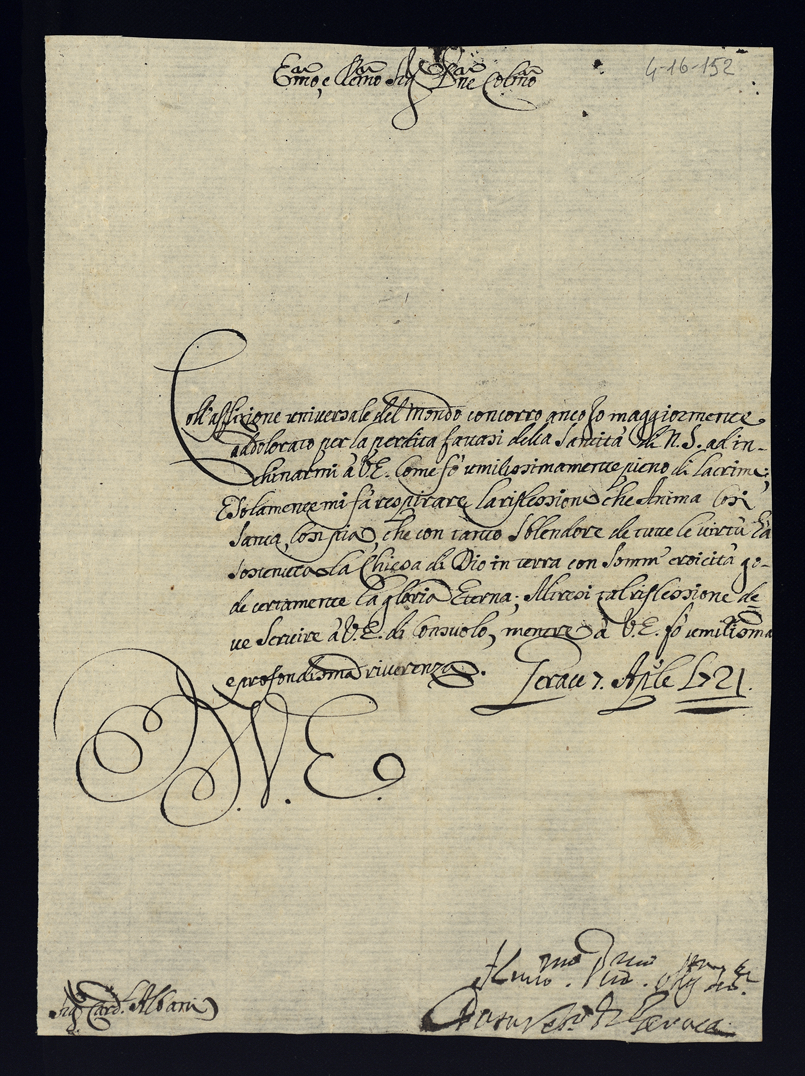 Emo, e Rmo Sig Pne Colmo
4-16-152
Coll'afflizione universale del Mondo concorro anco Io maggiormente
addolorato per la perdita fattasi della Santità di N.S. ad in-
chinarmi à V.E. Come fò umilissimamente pieno di lacrime;
E solamente mi fà respirare la riflessione che Anima Così
Santa, Così pia, che con tanto Splendore di tutte le virtù hà
sostenuto la Chiesa di Dio in terra con Somm' eroicità go-
de certamente la gloria Eterna; Altresì tal riflessione de-
ve Servire à V.E. di Consuolo, mentre à V.E. fò umilissima
e profondissima riverenza.
Gerace 7. Aple 1721.
D. V. E.
Sig. Card. Albani
Humo. Obligmo
Vescº di Gerace